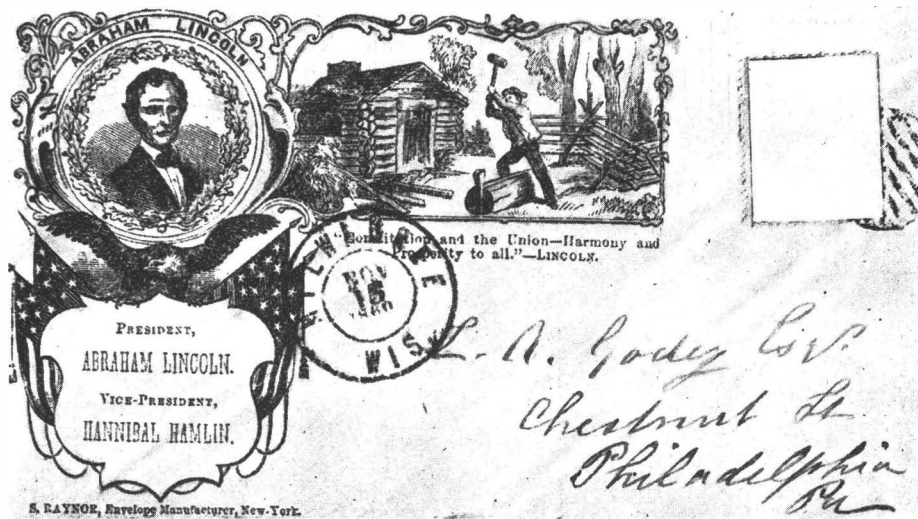 ABRAHAM LINCOLN
"Constitution and the Union—Harmony and
Prosperity to all."—LINCOLN.
NOV
15
1860
WIS
PRESIDENT,
ABRAHAM LINCOLN.
VICE-PRESIDENT,
HANNIBAL HAMLIN.
L. A. Godey Esqr.
Chestnut St
Philadelphia
Pa
S. RAYNOR, Envelope Manufacturer, New-York.